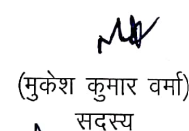 (मुकेश कुमार वर्मा)
सदस्य